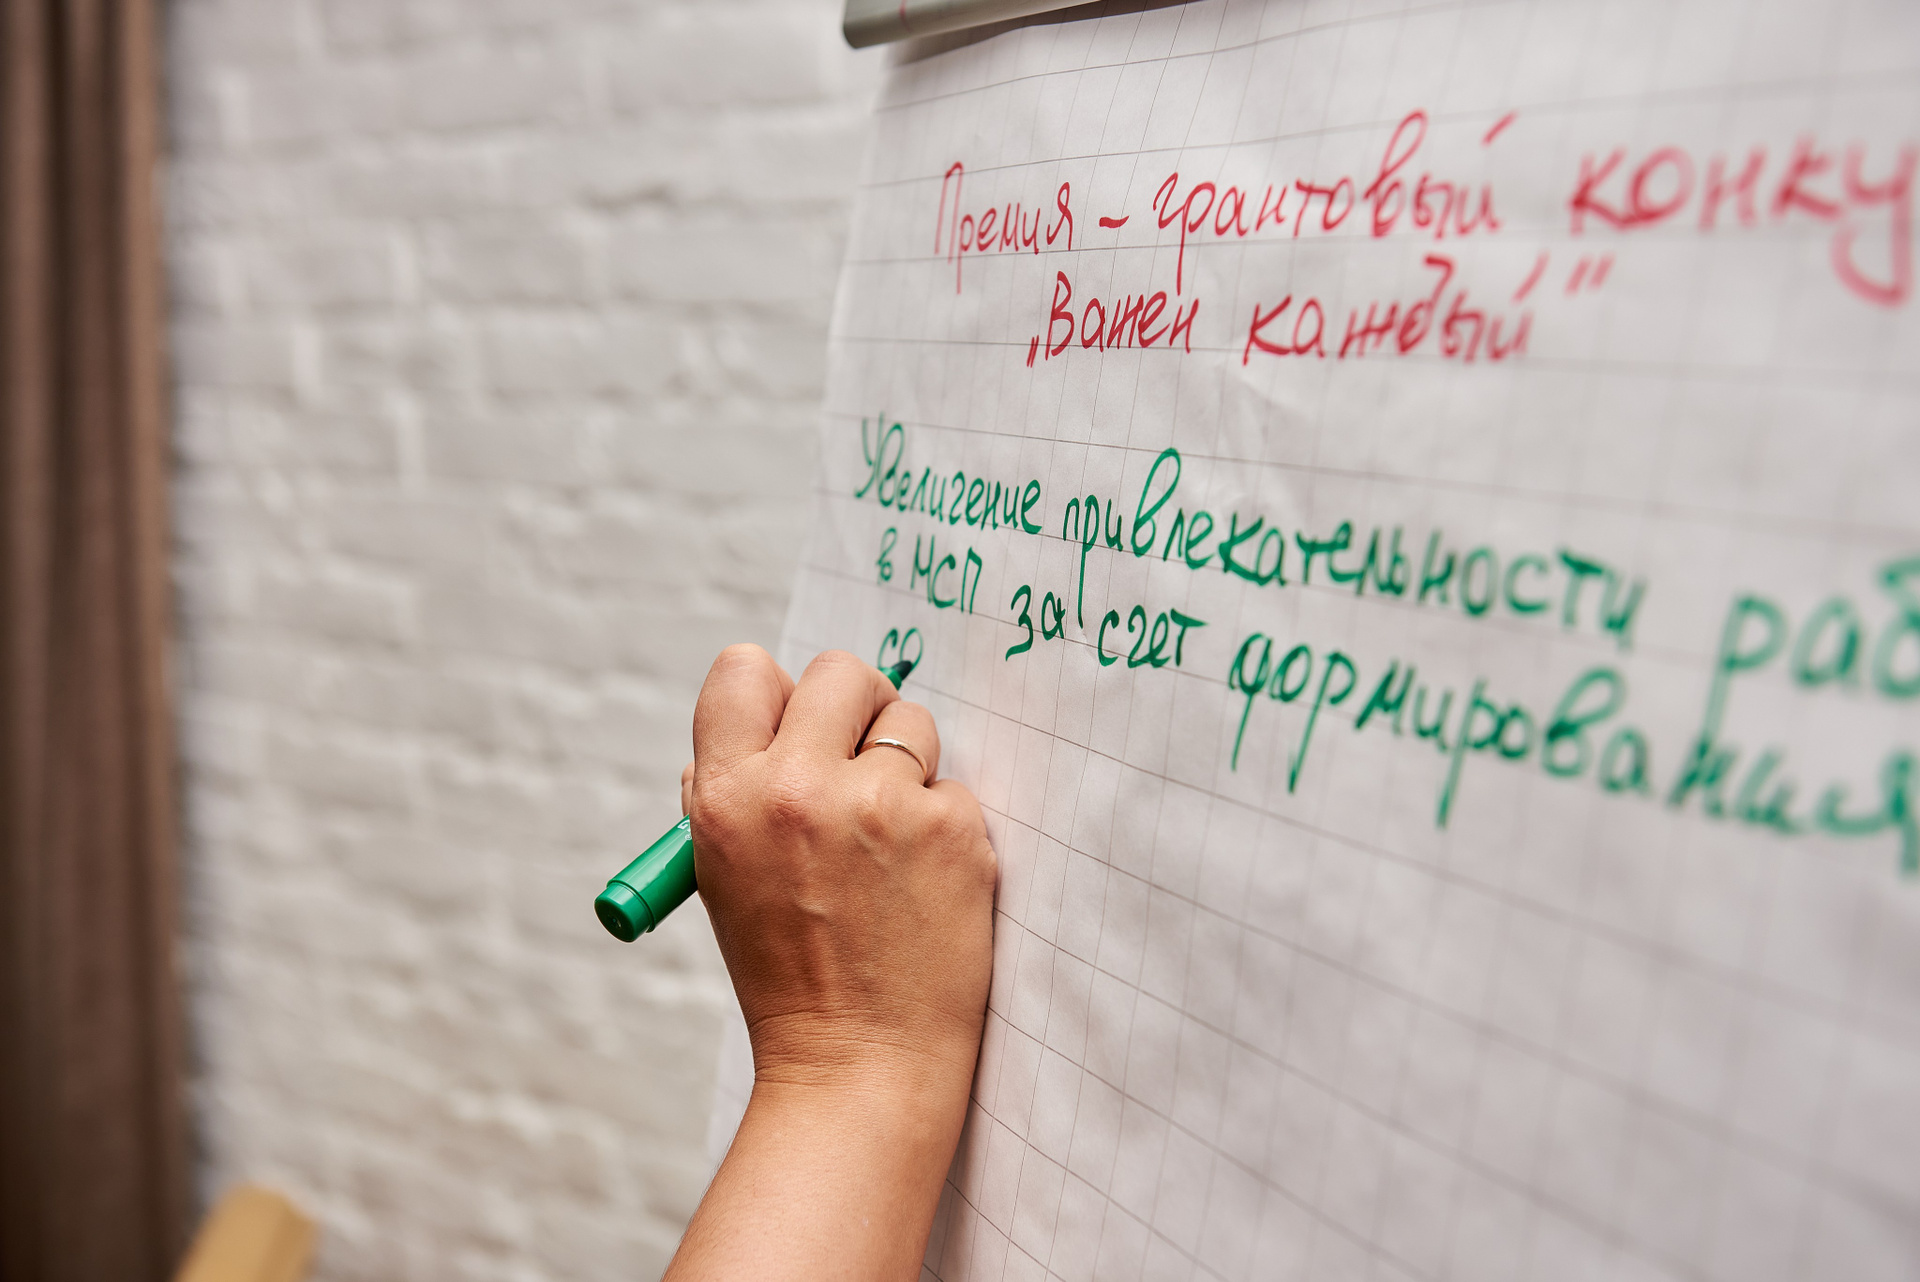 Премия - грантовый конку
„Важен каждый"
Увеличение привлекательности раб
в МСП за счет формирования
со